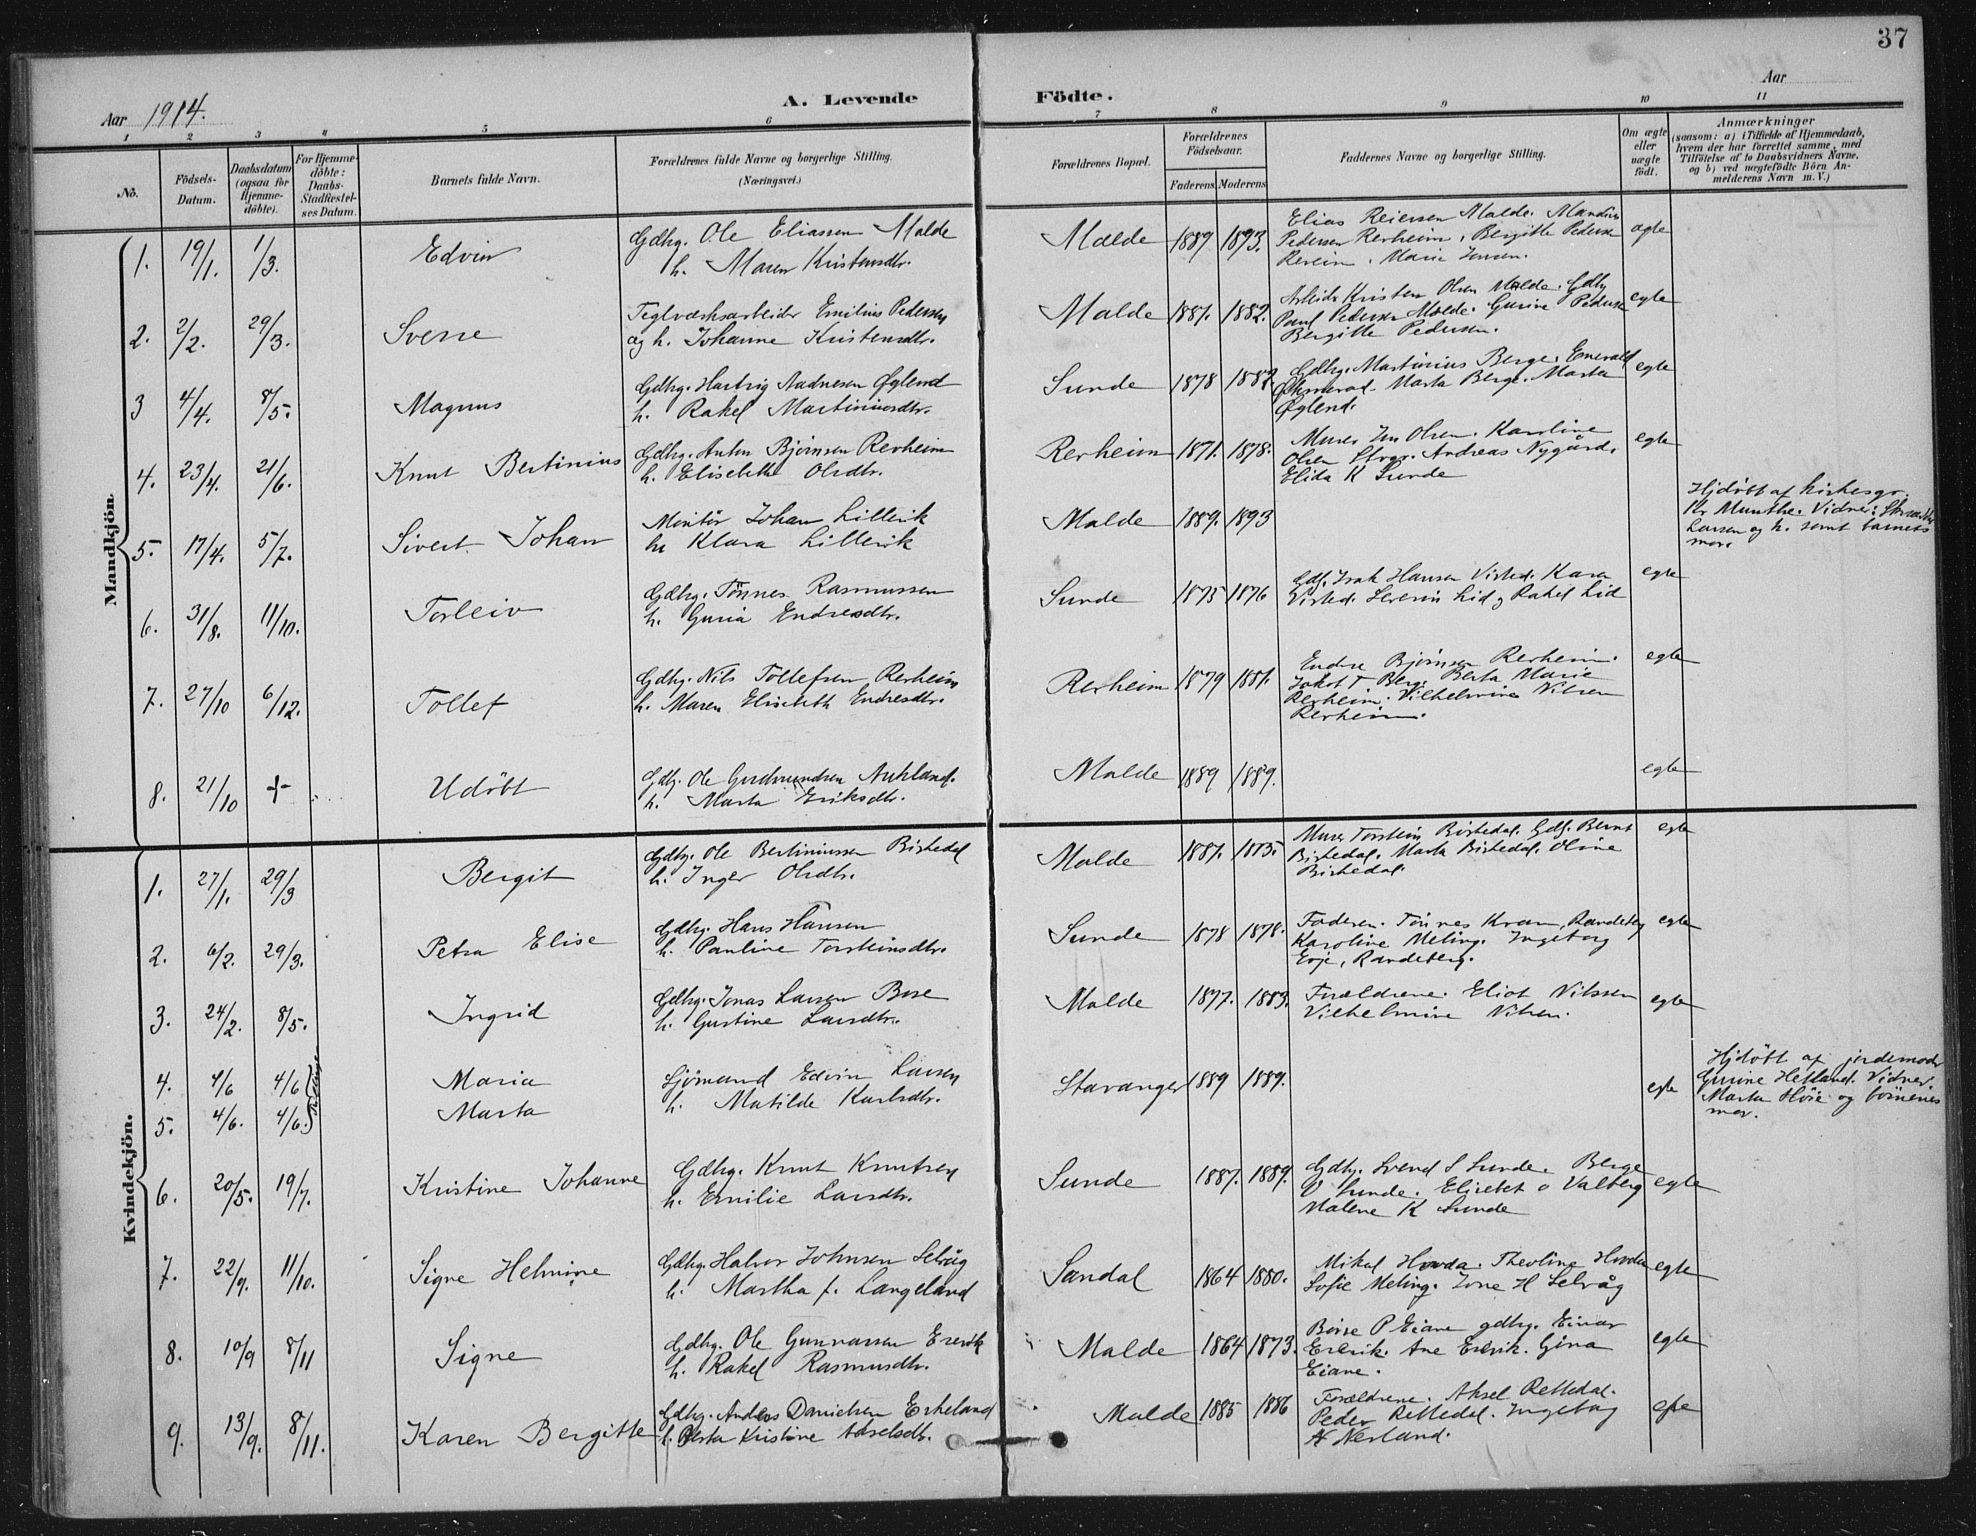 37
Aar 1914.
A. Levende Födte.
Aar
1 2 3 4 5 6 7 8 9 10 11
Nô.
Födsels-Datum.
Daabsdatum (ogsaa for Hjemme-döbte).
For Hjemme-döbte: Daabs-Stadfæstel-ses Datum.
Barnets fulde Navn.
Forældrenes fulde Navne og borgerlige Stilling. (Næringsvei.)
Forældrenes Bopæl.
Forældrenes Födselsaar.
Faderens Moderens
Faddernes Navne og borgerlige Stilling.
Om ægte eller uægte födt.
Anmærkninger
(saasom: a) i Tilfælde af Hjemmedaab, hvem der har forrettet samme, med Tilföielse af to Daabsvidners Navne, og b) ved uægtefödte Börn An-melderens Navn m. V.)
Mandkjön.
1. 19/1. 1/3. Edvin Gdbg. Ole Eliassen Malde Malde 1889 1893. Elias Reiersen Malde. egte
h. Maren Kristensdtr. Pedersen Rerheim, Bergitte Pederse
Marie Jensen.
2. 2/2. 29/3. Sverre Teglværksarbeider Emilius Pedersen Malde 1881. 1882. Arbeider Kristen Olsen Malde. Gdbg egte
og h. Johanne Kristensdtr. Paul Pedersen Malde. Gurine Pederse
Bergitte Pedersen.
3 4/4. 8/5. Magnus Gdbg. Hartvig Øglend Sunde 1878 1882 Gdbg. Martinius Berge. egte
h. Rakel Martiniusdtr. Marta Berge. Marta
Øglend.
4. 23/4. 21/6. Knut Bertinius Gdbg. Anton Bjørnsen Rerheim Rerheim 1871. 1878. Murer Olsen. Karoline egte
h. Elisabeth Olsdtr. Olsen Andreas Nygård.
Elida K Sunde
5. 17/4. 5/7. Sivert Johan Montør Johan Lillerik Malde 1889. 1893 Hjdöbt af kirkesgr.
h. Klara Lillerik Kr Munthe. Vidner:
Larsen og h. samt barnets
mor.
6. 31/8. 11/10. Torleiv Gdbg. Tönnes Rasmussen Sunde 1875 1876 Gdb. Isak Hansen Visted. Kara egte
h. Guria Endresdtr. Visted. Severin Lid, Rakel Lid
7. 27/10 6/12. Tollef Gdbg. Nils Tollefsen Rerheim Rerheim 1879 1881. Endre Bjørnsen Rerheim. egte
h. Maren Elisabeth Endresdtr. Jakob T Berg. Berta Marie
Rerheim. Vilhelmine Nilsen
Rerheim.
8. 21/10 + Udöbt Gdbg. Ole Gudmundsen Aukland. Malde 1889 1889. egte
h. Marta Eriksdtr.
Kvindekjön.
1. 27/1. 29/3 Bergit Gdbg. Ole Bertiniussen Birkedal Malde 1881. Murer Torstein Birkedal. Gdb. Bernt egte
h. Inger Olsdtr. Birkedal. Marta Birkedal. Oline
Birkedal.
2. 6/2. 29/3. Petra Elise Gdbg. Hans Hansen Sunde 1878 1878. Faderen. Tönnes Kram, Randeberg egte
h. Pauline Torsteinsdtr. Karoline Meling. Ingeborg
Erje, Randeberg.
3. 24/2. 8/5. Ingrid Gdbg. Jonas Larsen Bore Malde 1877. 1883. Forældrene. Eliot Nilssen egte
h. Gustine Larsdtr. Vilhelmine Nilsen.
4. 4/6 4/6 Maria Sjömand Edvin Larsen Stavanger 1889 1889. egte Hjdöbt af jordemoder
5. 4/6. 4/6. Marta h. Matilde Karlsdtr. Gurine Hetland. Vidner.
Marta Høie og börnenes
mor.
6. 20/5. 19/7. Kristine Johanne Gdbg. Knut Knutsen Sunde 1887. 1889. Gdbg. Svend S Sunde. Berge egte
h. Emilie Larsdtr. V Sunde. Elisebet o Valberg
Malene K Sunde
7. 22/9. 11/10. Signe Helmine Gdbg. Halvor Johnsen Selvåg Sandal 1864 1880. Mikal Hovda. Theoline Hovda egte
h. Martha f. Langeland Sofie Meling. Jone H Selvåg
8. 10/9 8/11 Signe Gdbg. Ole Gunnarsen Ererik Malde 1864 1873. Börre P Eiane gdbg. Einar egte
h. Rakel Rasmusdtr. Ererik. Ane Ererik. Gina
Eiane.
9. 13/9. 8/11. Karen Bergitte Gdbg. Anders Danielsen Erkeland Malde 1885 1886 Forældrene. Aksel Rettedal. egte
h. Berta Kristine Peder Rettedal. Ingeborg
A Nerland.